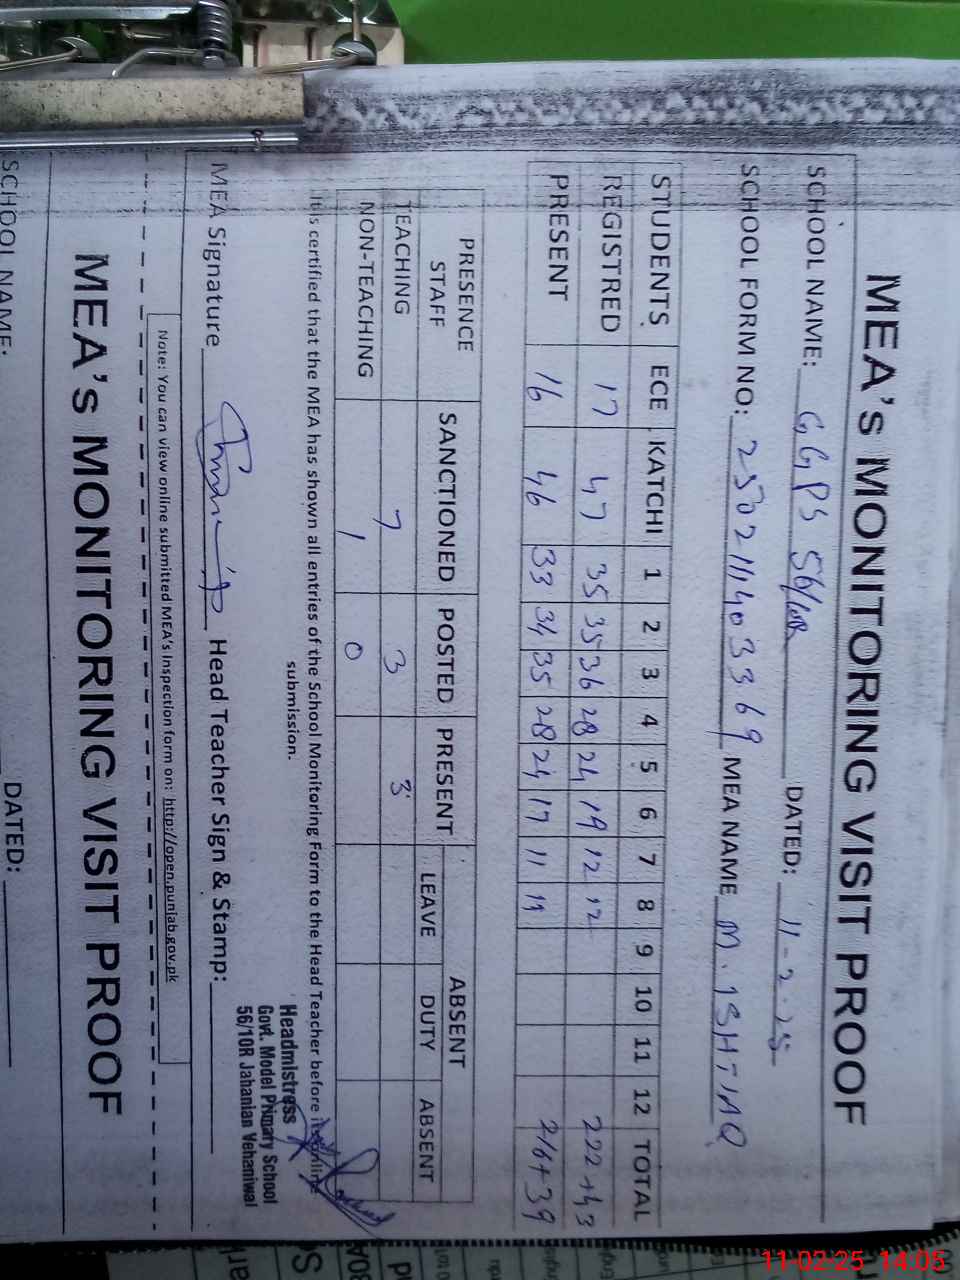 MEA's MONITORING VISIT PROOF
SCHOOL NAME: GGPS 56/10R DATED: 11-2-25
SCHOOL FORM NO: 250211403369 MEA NAME M. ISHTIAQ
STUDENTS ECE KATCHI 1 2 3 4 5 6 7 8 9 10 11 12 TOTAL
REGISTRED 17 47 35 35 36 28 24 19 12 12 222+43
PRESENT 16 46 33 34 35 28 24 17 11 11 216+39
PRESENCE STAFF SANCTIONED POSTED PRESENT ABSENT
LEAVE DUTY ABSENT
TEACHING 7 3 3
NON-TEACHING 1 0
It is certified that the MEA has shown all entries of the School Monitoring Form to the Head Teacher before it online
submission.
MEA Signature Head Teacher Sign & Stamp:
Headmistress
Govt. Model Primary School
56/10R Jahanian Vehaniwal
Note: You can view online submitted MEA's Inspection form on: http://open.punjab.gov.pk
MEA's MONITORING VISIT PROOF
SCHOOL NAME: DATED:
11-02-25 14:05